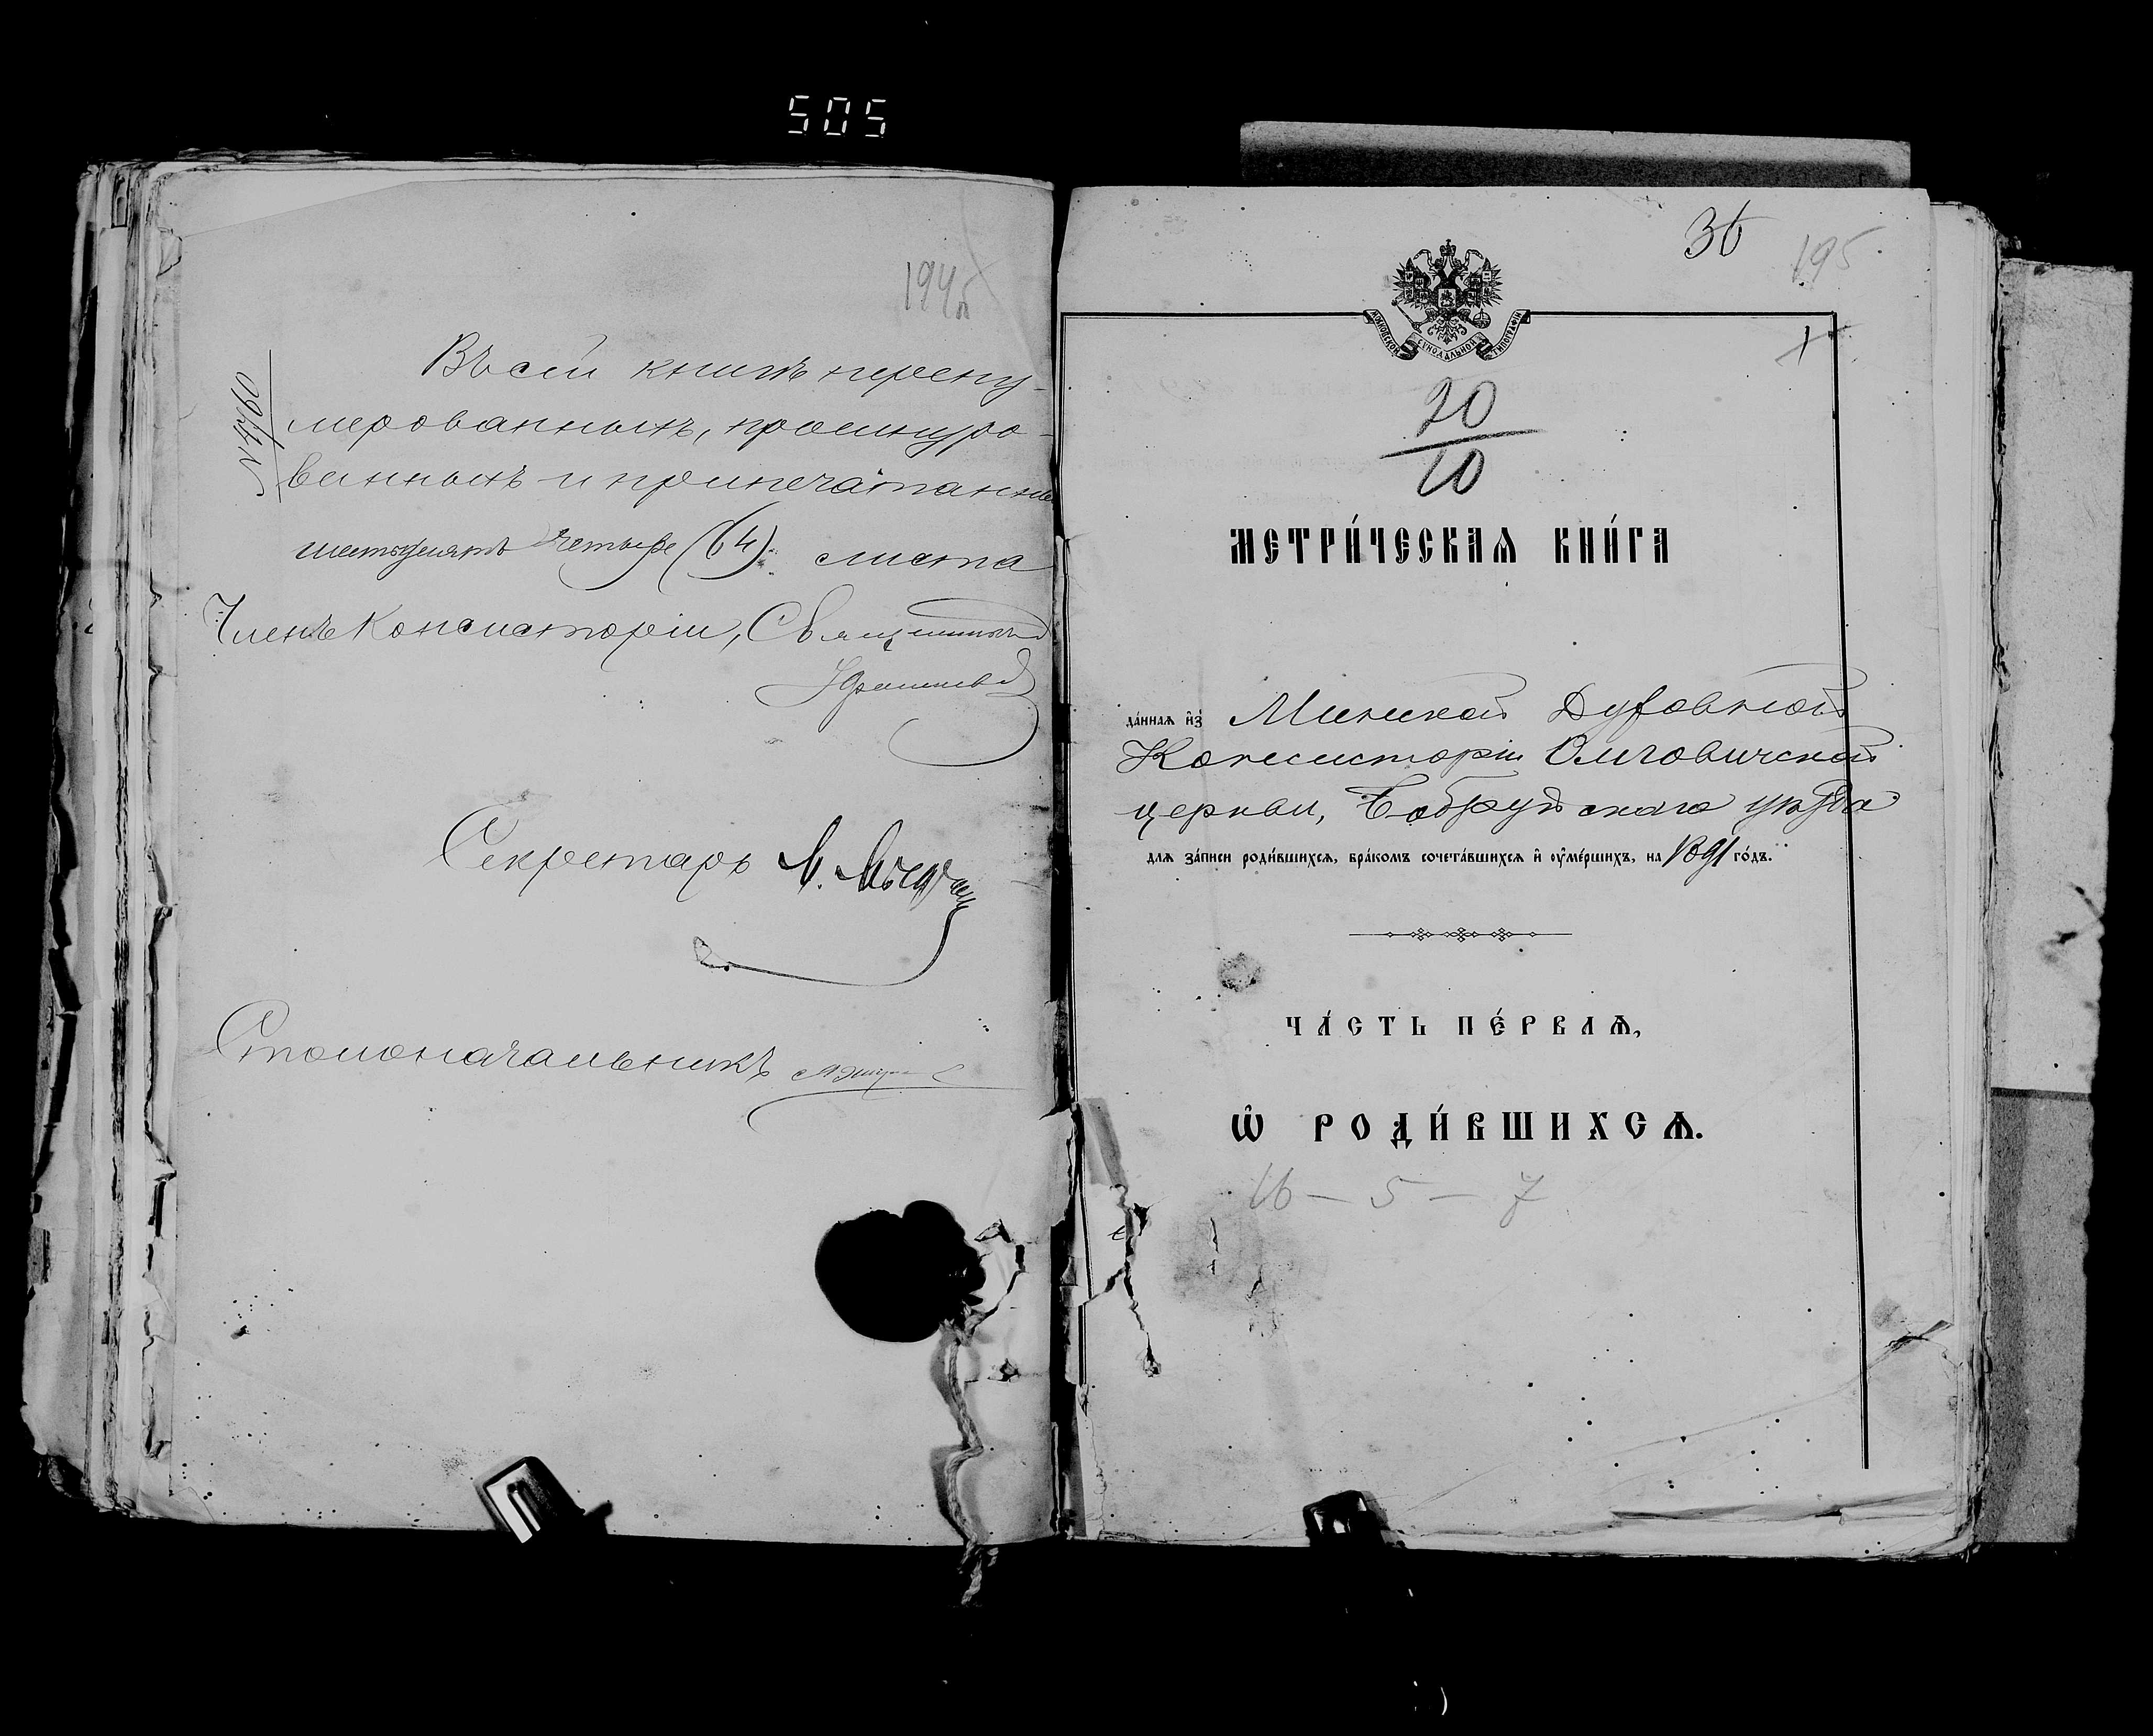 505
194об
Въ сей книгѣ перену-
мерованныхъ, прошнуро-
ванныхъ и припечатанны
шестьдесятъ четыре (64) листа
Членъ Консисторіи, Священникъ
Секретарь
Столоначальникъ
№ 4760
36
195
МОСКОВСКОЙ СѴНОДАЛЬНОЙ ТИПОГРАФІИ
20
10
МЕТРИ́ЧЕСКАѦ КНИ́ГА
ДА́ННАѦ И҆З̾ Минской Духовной
Консисторіи Омговичской
церкви, Бобруйскаго уѣзда
ДЛѦ ЗА́ПИСИ РОДИ́ВШИХСѦ, БРА́КОМЪ СОЧЕТА́ВШИХСѦ И҆ ОУ҆МЕ́РШИХЪ, НА 1891 ГО́ДЪ.
ЧА́СТЬ ПЕ́РВАѦ,
Ѡ҆ РОДИ́ВШИХСѦ.
16 – 5 – 7